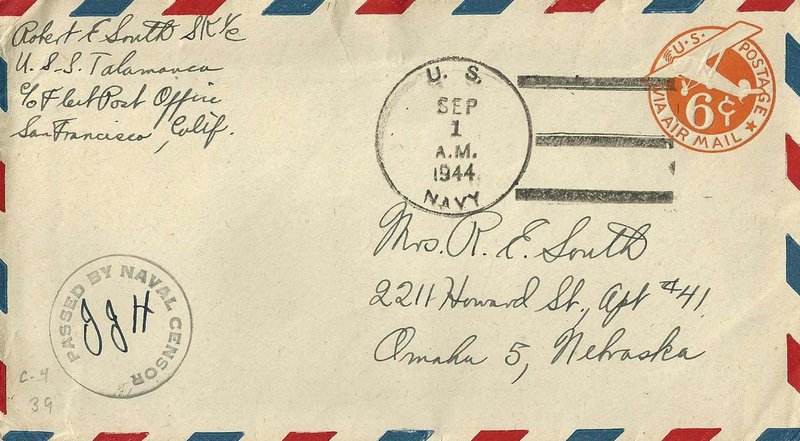 Robert E South SK 1/c
U.S.S. Talamanca
c/o Fleet Post Office
San Francisco, Calif.
U. S.
SEP
1
A.M.
1944
NAVY
U.S. POSTAGE
VIA AIR MAIL
6¢
Mrs. R. E. South
2211 Howard St., Apt #41
Omaha 5, Nebraska
PASSED BY NAVAL CENSOR
JJH
C-4
39